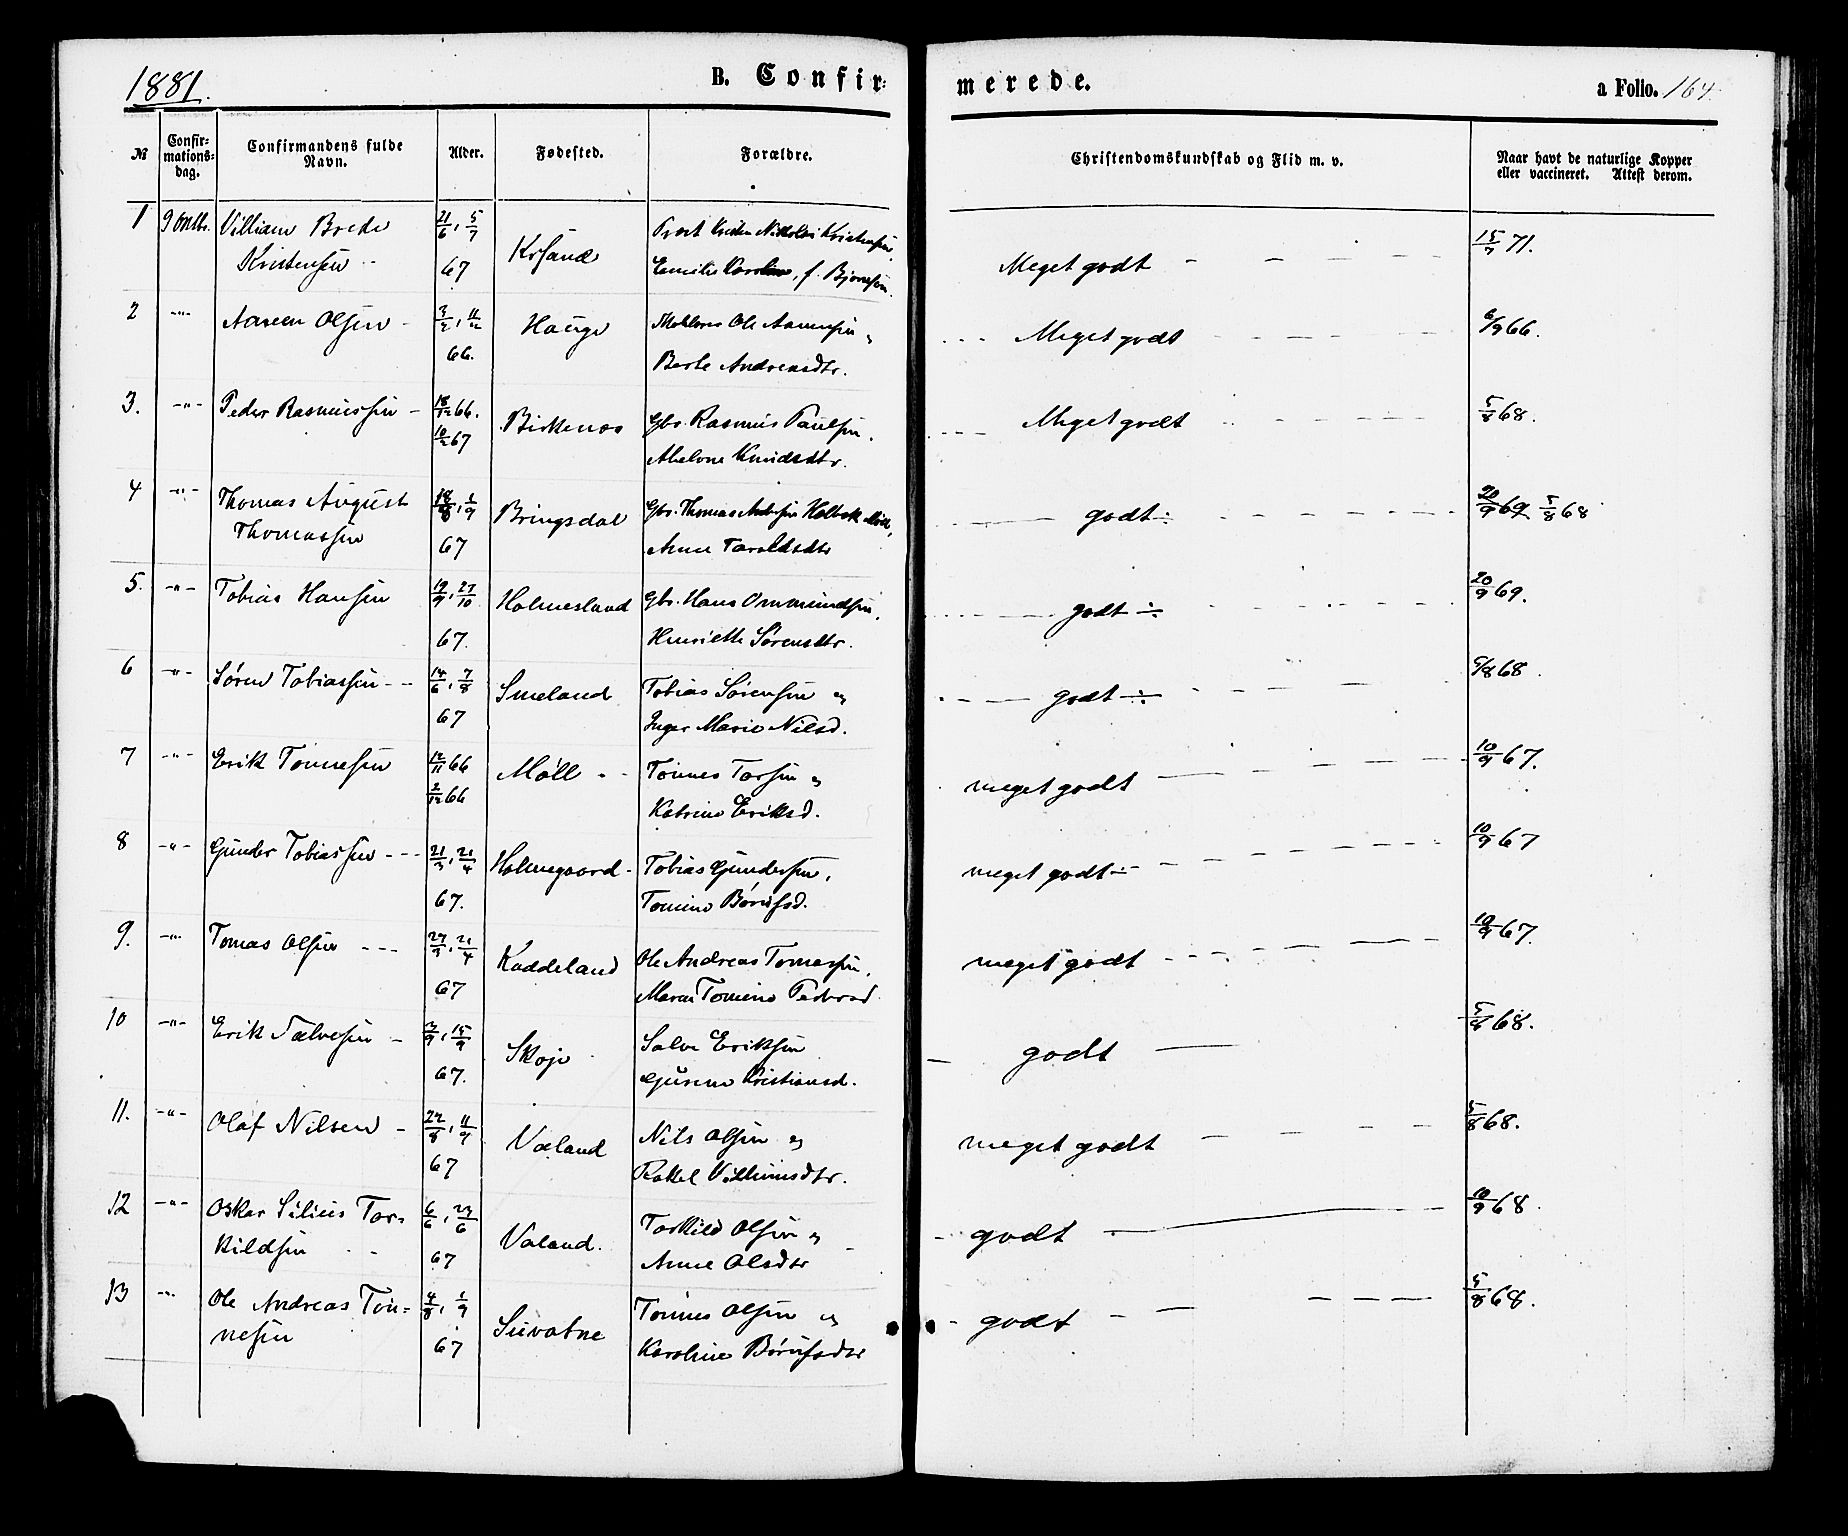 1881.
B. Confir-
merede.
a Folio. 164.
№
Confir-
mations-
dag.
Confirmandens fulde
Navn.
Alder.
Fødested.
Forældre.
Christendomskundskab og Flid m. v.
Naar havt de naturlige Kopper
eller vaccineret. Attest derom.
1 9 Octbr. Villiam Brede 21/6, 5/7 Krsand Provst Nikolai Kristensen,
Kristensen 67 Emilie Karoline, f. Bjørnsen. Meget godt 15/7 71.
2 -"- Aanen Olsen 3/2, 11/2 Hauge Ole Aanensen og
66. Berte Andreasdtr. Meget godt 6/9 66.
3. -"- Peder Rasmussen 18/12 66. Birkenæs Gbr. Rasmus Paulsen,
10/2 67 Abelone Knudsdtr. Meget godt 5/8 68.
4 -"- Thomas August 18/8, 1/9 Bringsdal Gbr. Thomas
Thomassen 67 Anne Taraldsdtr godt ÷ 20/9 69 5/8 68
5. -"- Tobias Hansen 19/9, 27/10 Holmesland Gbr. Hans Ommundsen,
67. Henriette Sørensdtr. godt ÷ 20/9 69.
6 -"- Søren Tobiassen 14/6, 7/8 Smeland Tobias Sørensen og
67 Inger Marie Nilsd. godt ÷ 5/8 68
7 -"- Erik Tønnesen 12/11 66 Møll Tønnes Torsen og
2/12 66 Katrine Eriksd. meget godt 10/9 67.
8 -"- Gunder Tobiassen 21/3, 21/4 Holmegaard Tobias Gundersen,
67. Tomine Børufsd. meget godt ÷ 10/9 67
9. -"- Tomas Olsen 27/3, 21/4 Kaddeland Ole Andreas Tomassen,
67 Maren Tomine Pedersd meget godt 10/9 67.
10 -"- Erik Salvesen 3/9, 15/9 Skoje Salve Eriksen
67. Gurine Kristiansd. godt 5/8 68.
11. -"- Olaf Nilsen 22/8, 11/9 Valand Nils Olsen og
67 Rakel Villumsdtr. meget godt 5/8 68.
12 -"- Oskar Silius Tor- 6/6, 23/6 Valand. Torkild Olsen og
kildsen 67 Anne Olsdtr godt 10/9 68
13 -"- Ole Andreas Tøn- 4/8, 1/9 Suvatne Tønnes Olsen og
nesen 67 Karoline Børufsdtr godt 5/8 68.